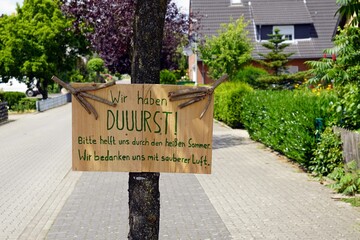 Wir haben
DUUURST!
Bitte helft uns durch den heißen Sommer.
Wir bedanken uns mit sauberer Luft.